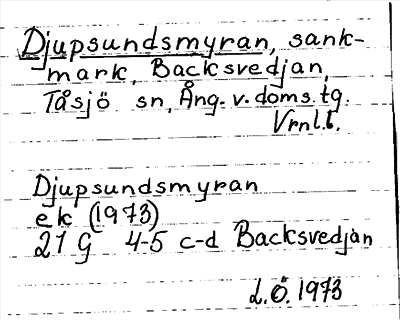 Djupsundsmyran, sank-
mark, Backsvedjan,
Tåsjö sn, Ång. v. doms. tg.
Vrnl.b.
Djupsundsmyran
ek (1973)
21 G 4-5 c-d Backsvedjan
L.Ö. 1973